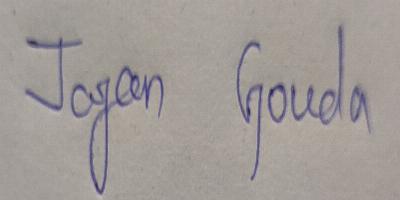 Jogen Gouda